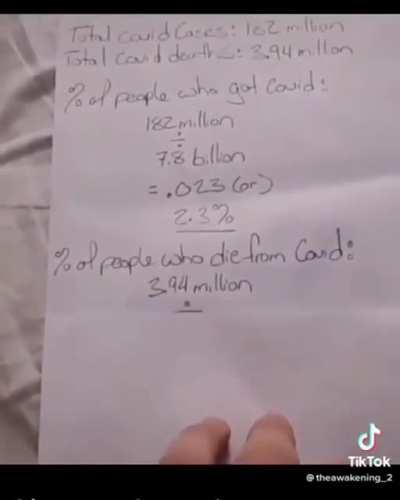 Total Covid Cases: 182 million
Total Covid deaths: 3.94 millon
% of people who got Covid:
182 million
÷
7.8 billion
= .023 (or)
2.3%
% of people who die from Covid:
3.94 million
÷
TikTok
@theawakening_2